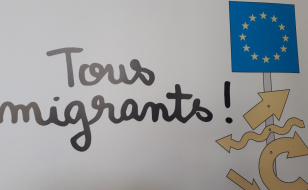 Tous
migrants !